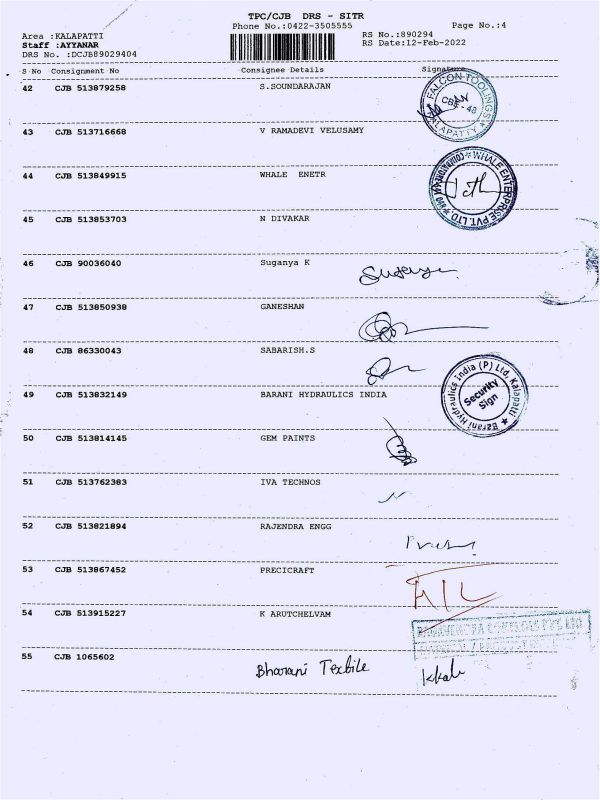 TPC/CJB DRS - SITR
Phone No.:0422-3505555
Page No.:4
Area :KALAPATTI
RS No.:890294
Staff :AYYANAR
RS Date:12-Feb-2022
DRS No. :DCJB89029404
S No Consignment No Consignee Details Signature
42 CJB 513879258 S.SOUNDARAJAN
FALCON TOOLINGS
KALAPATTY
43 CJB 513716668 V RAMADEVI VELUSAMY
44 CJB 513849915 WHALE ENETR
WHALE ENTERPRISE PVT.LTD
45 CJB 513853703 N DIVAKAR
46 CJB 90036040 Suganya K
47 CJB 513850938 GANESHAN
48 CJB 86330043 SABARISH.S
49 CJB 513832149 BARANI HYDRAULICS INDIA
Barani Hydraulics India (P) Ltd, Kalapatti
Security
Sign
50 CJB 513814145 GEM PAINTS
51 CJB 513762383 IVA TECHNOS
52 CJB 513821894 RAJENDRA ENGG
53 CJB 513867452 PRECICRAFT
54 CJB 513915227 K ARUTCHELVAM
55 CJB 1065602 Bharani Texbile